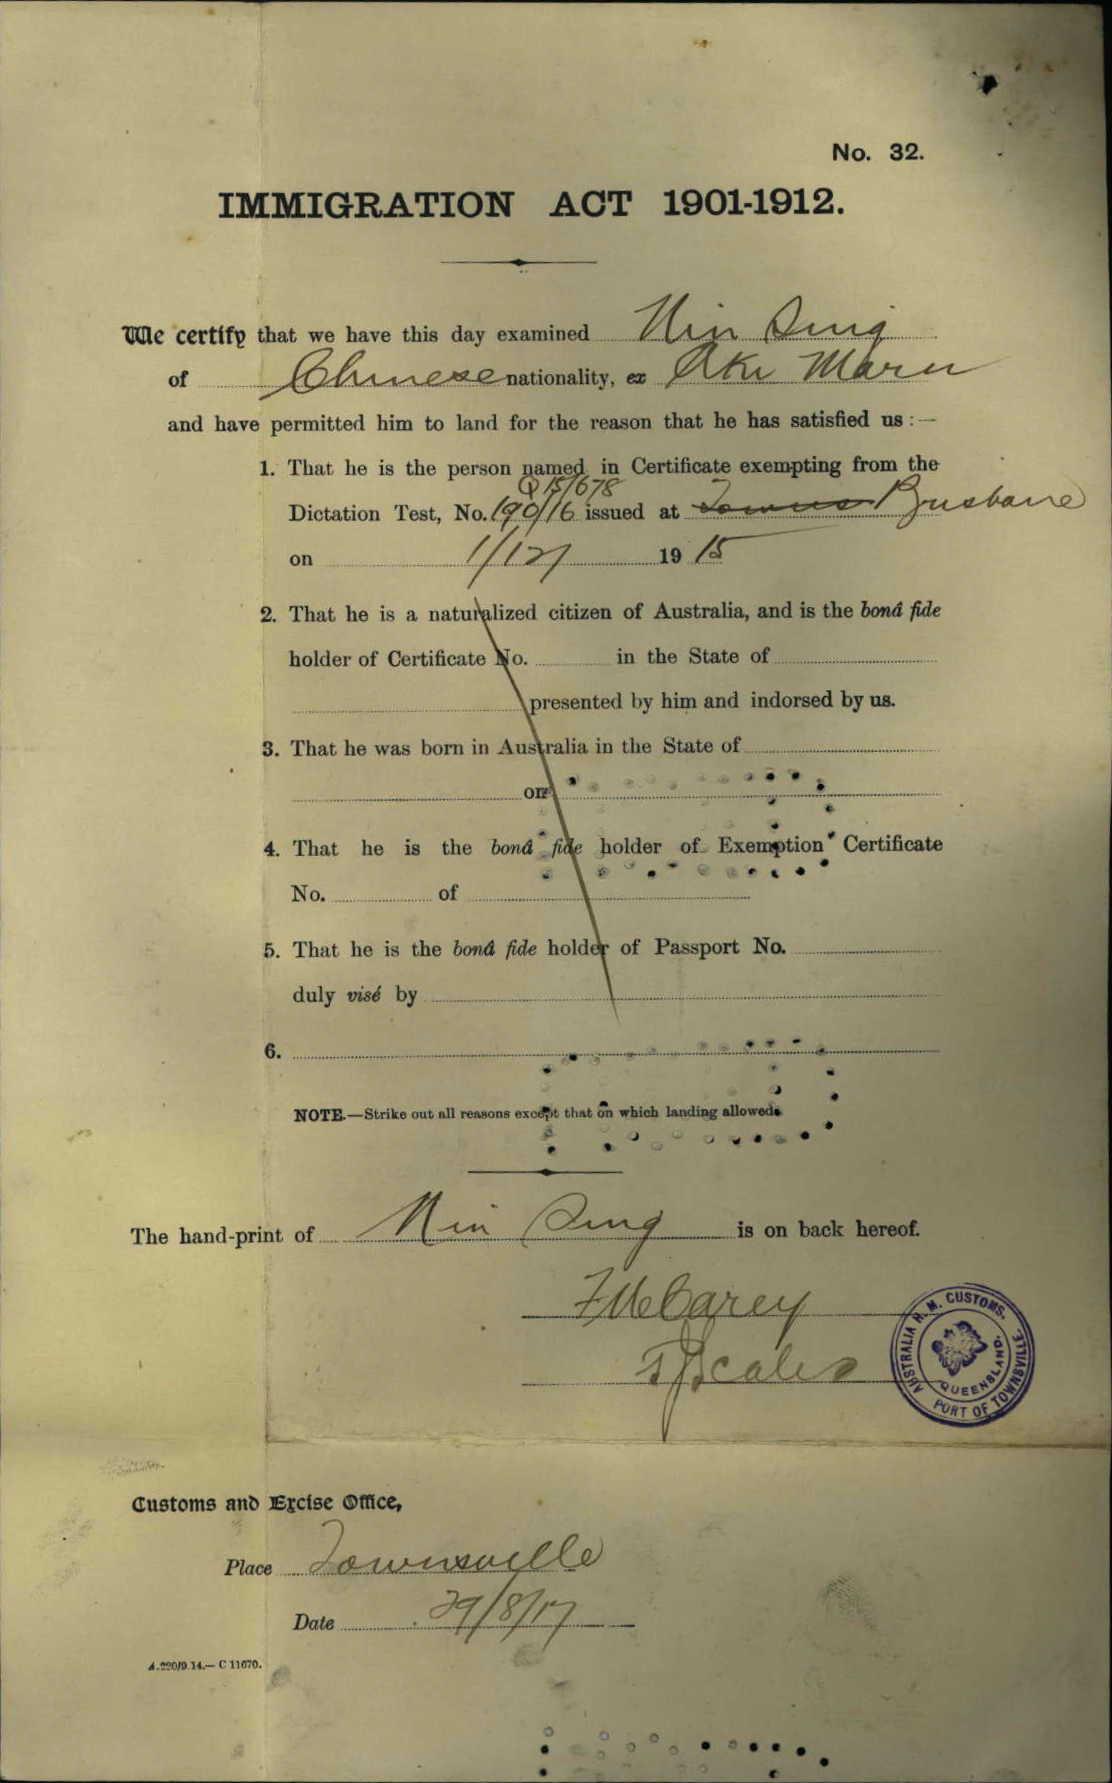 No. 32.
IMMIGRATION ACT 1901-1912.
We certify that we have this day examined Nin Sing
of Chinese nationality, ex Aki Maru
and have permitted him to land for the reason that he has satisfied us :—
1. That he is the person named in Certificate exempting from the
Q 15/678
Dictation Test, No. 190/16 issued at Towns Brisbane
on 1/12/ 1915
2. That he is a naturalized citizen of Australia, and is the bonâ fide
holder of Certificate No. in the State of
presented by him and indorsed by us.
3. That he was born in Australia in the State of
on
4. That he is the bonâ fide holder of Exemption Certificate
No. of
5. That he is the bonâ fide holder of Passport No.
duly visé by
6.
NOTE.—Strike out all reasons except that on which landing allowed.
The hand-print of Nin Sing is on back hereof.
F McCarey
Scales
AUSTRALIA H. M. CUSTOMS.
QUEENSLAND.
PORT OF TOWNSVILLE.
Customs and Excise Office,
Place Townsville
Date 29/8/17
A.220/9.14.— C 11670.